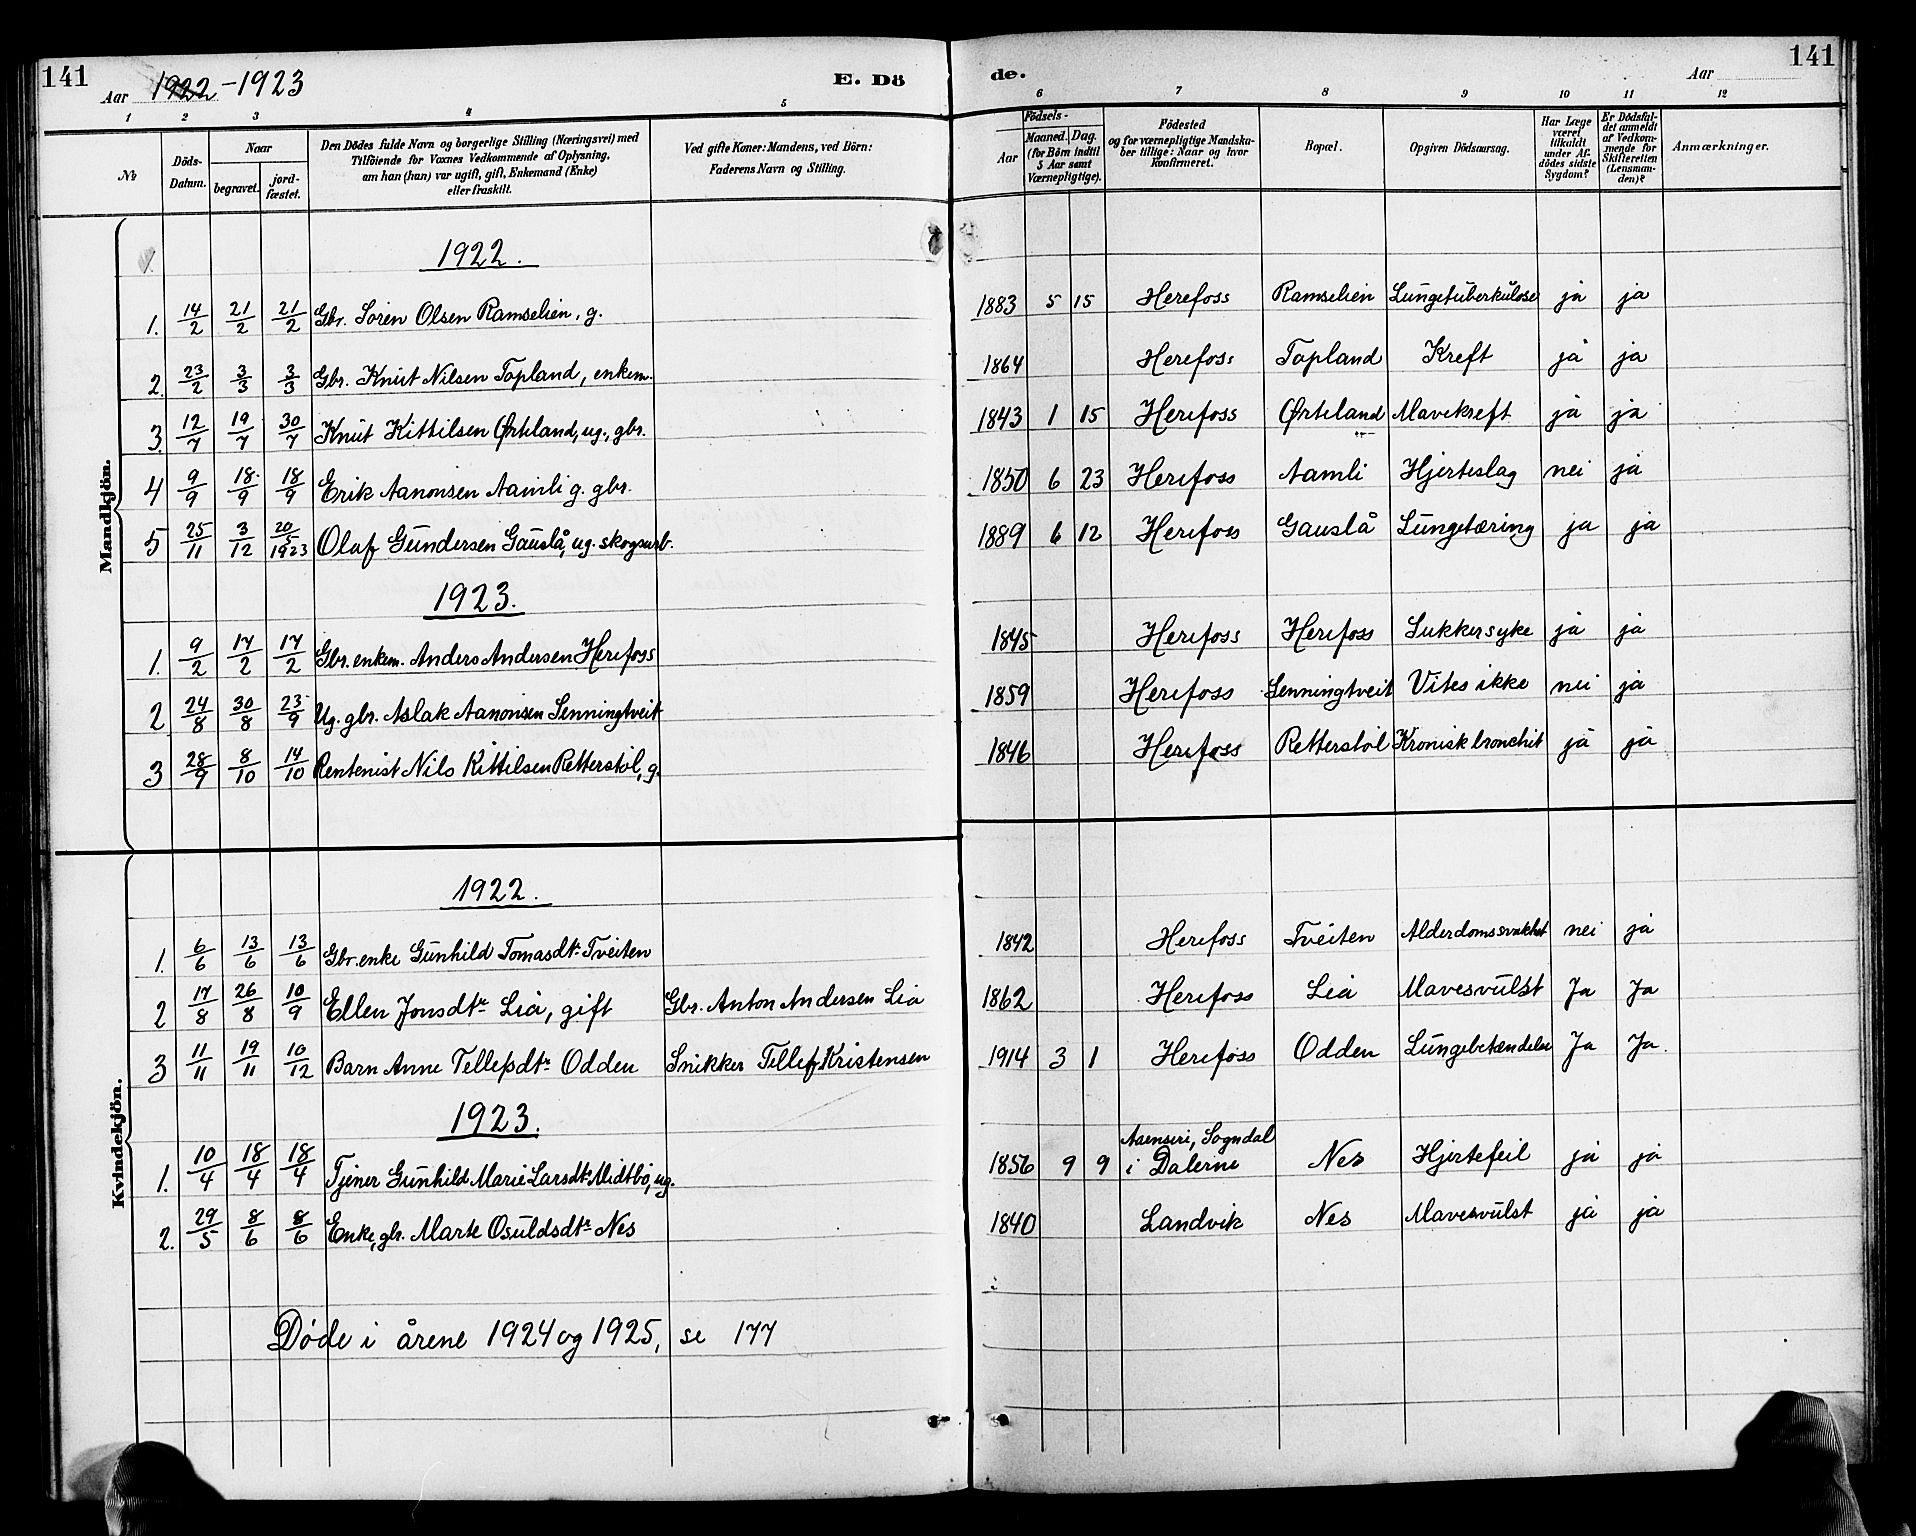 141
Aar 1922-1923
E. Dö
de.
Aar
141
1 2 3 4 5 6 7 8 9 10 11 12
No
Döds-Datum.
Naar
begravet.
jord-fæstet.
Den Dödes fulde Navn og borgerlige Stilling (Næringsvei) med
Tilföiende for Voxnes Vedkommende af Oplysning,
om han (hun) var ugift, gift, Enkemand (Enke)
eller fraskilt.
Ved gifte Koner: Mandens, ved Börn:
Faderens Navn og Stilling.
Födsels-
Aar
Maaned. Dag.
(for Börn indtil
5 Aar samt
Værnepligtige).
Födested
og for værnepligtige Mandska-
ber tillige: Naar og hvor
Konfirmeret.
Bopæl.
Opgiven Dödsaarsag.
Har Læge
været
tilkaldt
under Af-
dödes sidste
Sygdom?
Er Dödsfal-
det anmeldt
af Vedkom-
mende for
Skifteretten
(Lensman-
den)?
Anmærkninger.
Mandkjön.
1.
1922.
1. 14/2 21/2 21/2 Gbr. Sören Olsen Ramselien, g. 1883 5 15 Herefoss Ramselien Lungetuberkulose ja ja
2. 23/2 3/3 3/3 Gbr. Knut Nilsen Topland, enkem. 1864 Herefoss Topland Kreft ja ja
3. 12/7 19/7 30/7 Knut Kittilsen Ørteland, ug., gbr. 1843 1 15 Herefoss Ørteland Mavekreft ja ja
4 9/9 18/9 18/9 Erik Aanonsen Aamli g. gbr. 1850 6 23 Herefoss Aamli Hjerteslag nei ja
5 25/11 3/12 20/5 1923 Olaf Gundersen Gauslå, ug. skogsarb. 1889 6 12 Herefoss Gauslå Lungetæring ja ja
1923.
1. 9/2 17/2 17/2 Gbr. enkem. Anders Andersen Herefoss 1845 Herefoss Herefoss Sukkersyke ja ja
2 24/8 30/8 23/9 Ug. gbr. Aslak Aanonsen Senningtveit 1859 Herefoss Senningtveit Vites ikke nei ja
3 28/9 8/10 14/10 Rentenist Nils Kittilsen Retterstøl, g. 1846 Herefoss Retterstøl Kronisk bronchit ja ja
Kvindekjön.
1922.
1. 6/6 13/6 13/6 Gbr. enke Gunhild Tomasdtr Tveiten 1842 Herefoss Tveiten Alderdomssvakhet nei ja
2 17/8 26/8 10/9 Ellen Jonsdtr Lia, gift Gbr. Anton Andersen Lia 1862 Herefoss Lia Mavesvulst Ja Ja
3 11/11 19/11 10/12 Barn Anne Tellefsdtr Odden Snikker Tellef Kristensen 1914 3 1 Herefoss Odden Lungebetændelse Ja Ja.
1923.
1. 10/4 18/4 18/4 Tjener Gunhild Marie Larsdtr Midtbö, ug. 1856 9 9 Aaenseri, Sogndal i Dalerne Nes Hjertefeil ja ja
2. 29/5 8/6 8/6 Enke, gbr. Marte Osuldsdtr Nes 1840 Landvik Nes Mavesvulst ja ja
Døde i årene 1924 og 1925, se 177